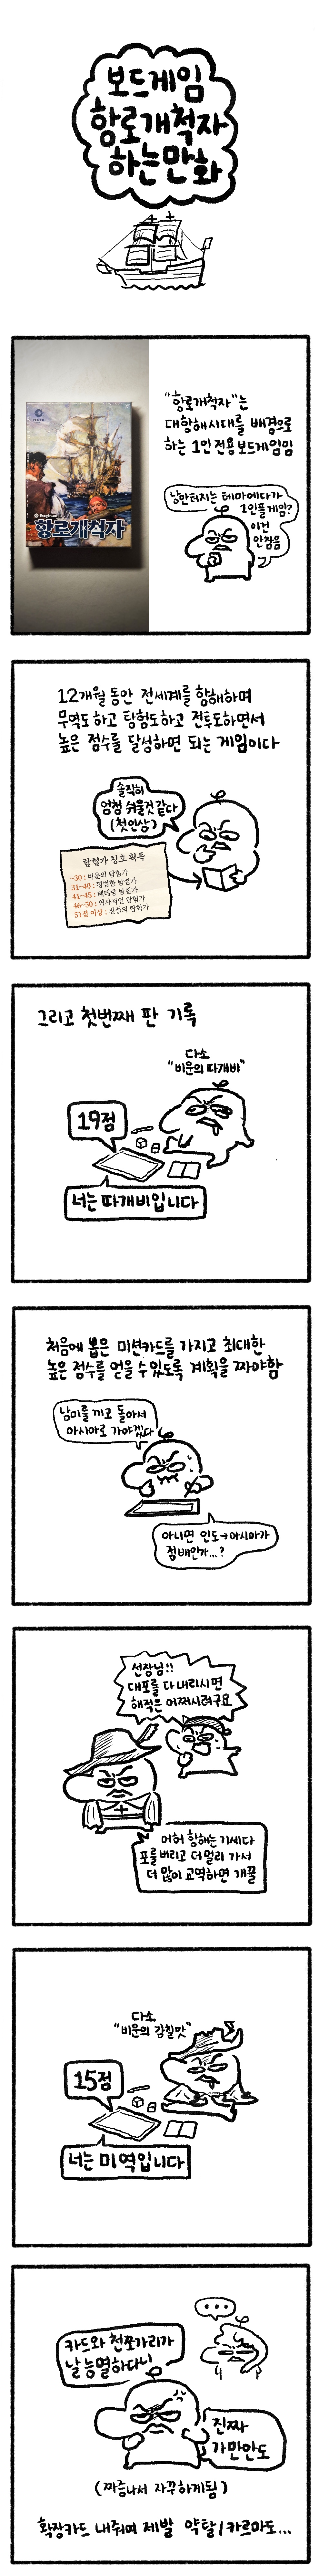 보드게임
항로개척자
하는만화
항로개척자
"항로개척자"는
대항해시대를 배경으로
하는 1인 전용 보드게임임
낭만터지는 테마에다가
1인플게임?
이건
안참음
12개월 동안 전세계를 항해하며
무역도하고 탐험도하고 전투도하면서
높은 점수를 달성하면 되는 게임이다
솔직히
엄청 쉬울것같다
(첫인상)
탐험가 칭호 획득
~30 : 비운의 탐험가
31~40 : 평범한 탐험가
41~45 : 베테랑 탐험가
46~50 : 역사적인 탐험가
51점 이상 : 전설의 탐험가
그리고 첫번째 판 기록
다소
"비운의 따개비"
19점
너는 따개비입니다
처음에 뽑은 미션카드를 가지고 최대한
높은 점수를 얻을 수 있도록 계획을 짜야함
남미를 끼고 돌아서
아시아로 가야겠다
아니면 인도→아시아가
정배인가...?
선장님!!
대포를 다 내리시면
해적은 어쩌시려구요
어허 항해는 기세다
포를 버리고 더 멀리 가서
더 많이 교역하면 개꿀
다소
"비운의 감칠맛"
15점
너는 미역입니다
...
카드와 천쪼가리가
날 능멸하다니
진짜
가만안도
(짜증나서 자꾸하게됨)
확장카드 내줘여 제발 약탈/카르마도...